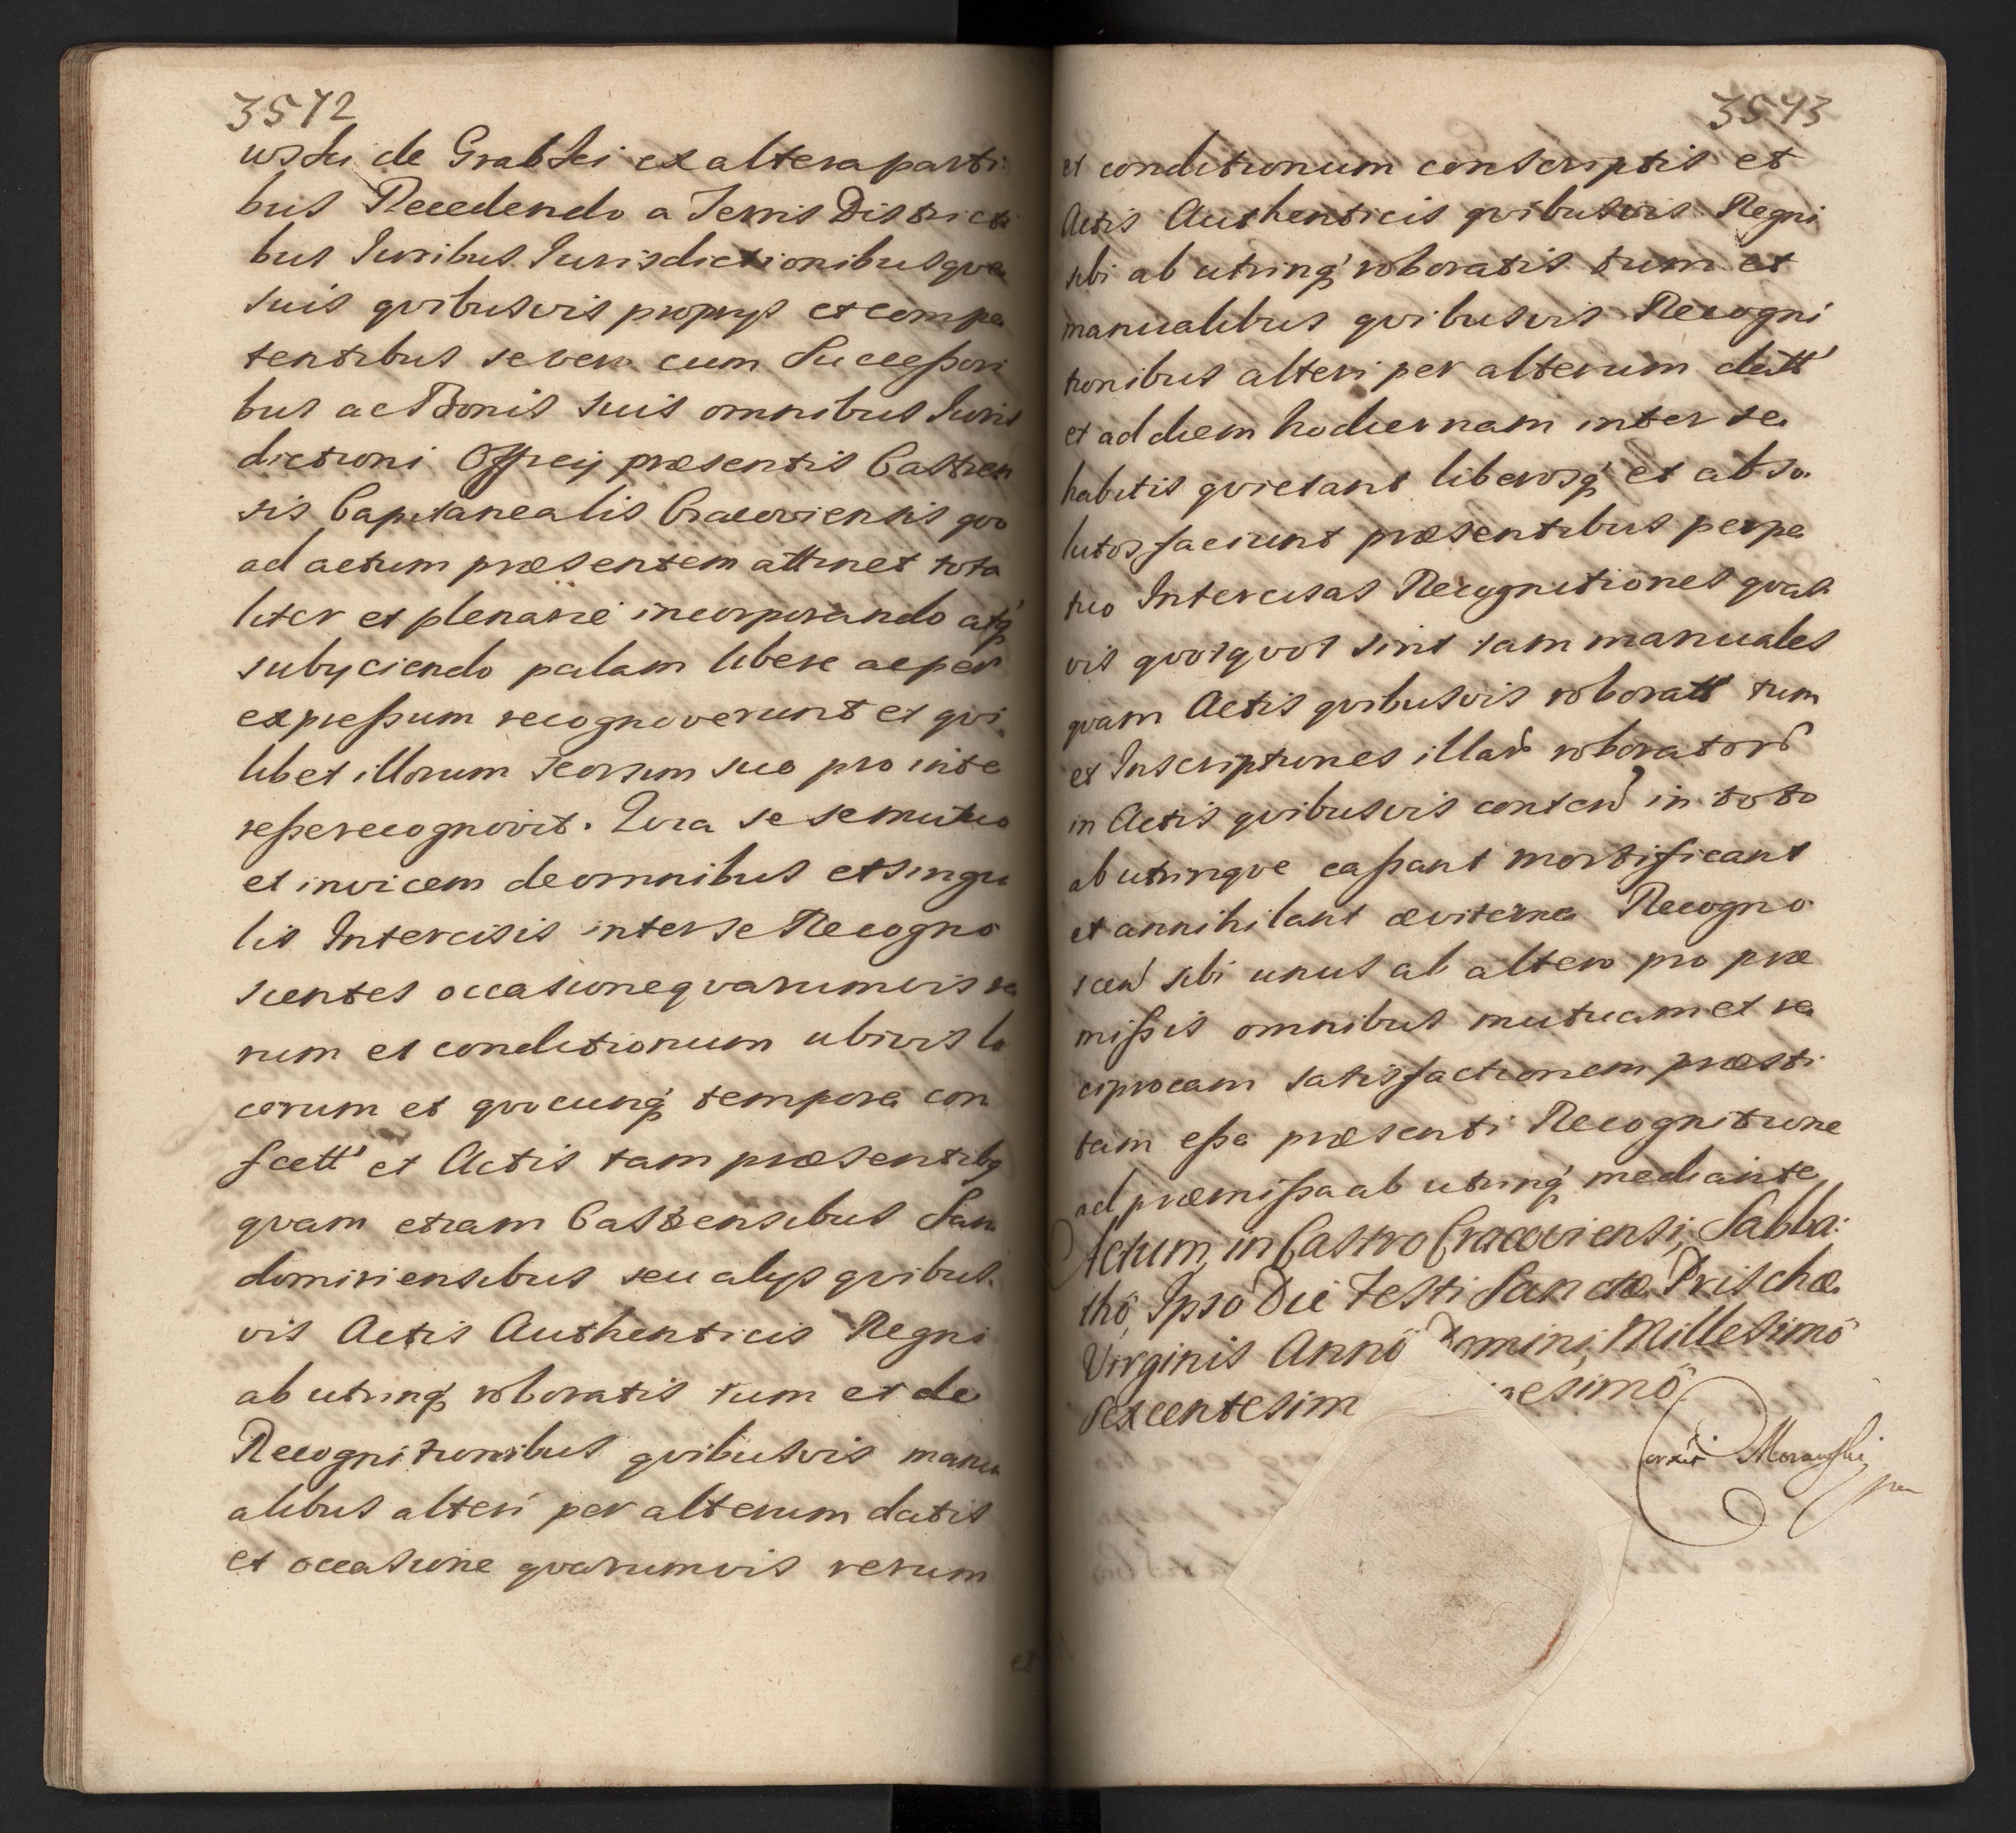 3572
wski de Grabki ex altera parti
bus Recedendo a Terris Districti
bus Iuribus Iurisdictionibusque
suis qvibusvis proprys et compe
tentibus se vero cum Successori
bus ac Bonis suis omnibus Iuris
dictioni Officij præsentis Castren
sis Capitanealis Cracoviensis qvo
ad actum præsentem attinet tota
liter et plenarie incorporando atq́
subyciendo palam libere ac per
expressum recognoverunt et qvi
libet illorum seorsim suo pro inte
resse recognovit. Qvia se se mutuo
et invicem de omnibus et singu
lis Intercisis inter se Recogno
scentes occasione qvarumvis re
rum et conditionum ubivis lo
corum et qvocunq́ tempore con
fectt' et Actis tam præsentibq
qvam etiam Castrensibus San
domiriensibus seu alys qvibus
vis Actis Authenticis Regni
ab utrinq́ roboratis tum et de
Recognitionibus qvibusvis manu
alibus alteri per alterum datis
et occasione qvarumvis rerum
et
3573
et conditionum conscriptis et
Actis Authenticis qvibusvis Regni
sibi ab utrinq́ roboratis tum et
manualibus qvibusvis Recogni
tionibus alteri per alterum datt'
et ad diem hodiernam inter se
habitis qvietant liberosq́ et abso
lutos faciunt præsentibus perpe
tuo Intercisas Recognitiones qvas
vis qvotqvot sint tam manuales
qvam Actis qvibusvis roboratt' tum
et Inscriptiones illar roborator
in Actis qvibusvis conten in toto
ab utrinqve cassant mortificant
et annihilant æviterne Recogno
scen sibi unus ab altero pro præ
missis omnibus mutuam et re
ciprocam satisfactionem præsti
tam esse præsenti Recognitione
ad præmissa ab utrinq́ mediante
Actum, in Castro Cracoviensi, Sabba:
thô, Ipso Die Festi Sanctæ Prischæ
Virginis Annô Domini, Millesimô
Sexcentesim esimô
Corrixit Morawski
mp